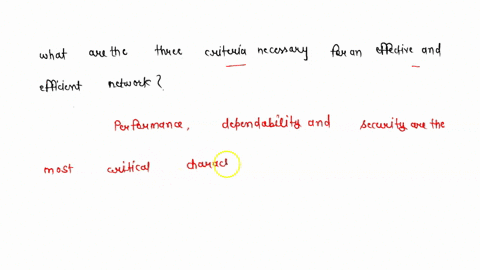 what are the three criteria necessary for an effective and
efficient network?
Performance, dependability and security are the
most critical charac